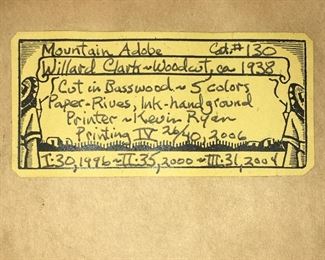 Mountain Adobe Cat.# 130
Willard Clark ~ Woodcut, ca 1938
Cut in Basswood ~ 5 colors
Paper - Rives, Ink - hand ground
Printer ~ Kevin Ryan
Printing IV 26/40, 2006
I·30, 1996 ~ II·35, 2000 ~ III·31, 2004